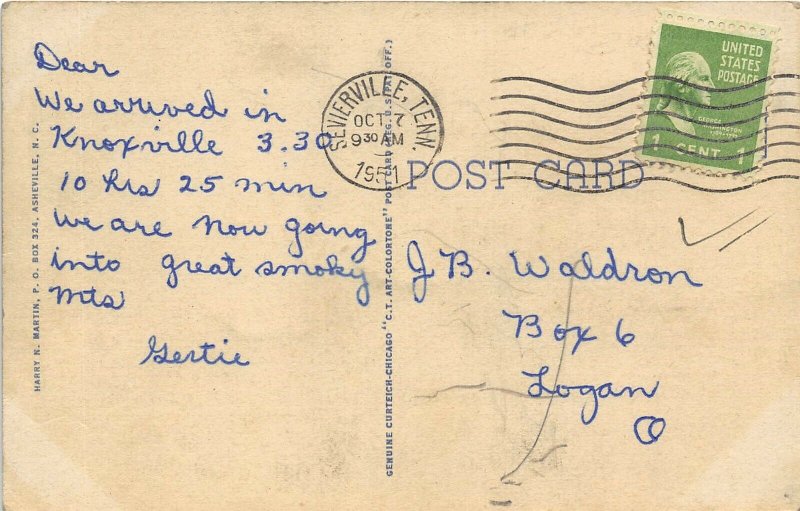 Dear
We arrived in
Knoxville 3.30
10 hrs 25 min
we are now going
into great smoky
Mts
Gertie
HARRY N. MARTIN, P. O. BOX 324, ASHEVILLE, N. C.
GENUINE CURTEICH-CHICAGO "C.T. ART-COLORTONE" POST CARD (REG. U.S. PAT. OFF.)
SEVIERVILLE, TENN.
OCT 7
9 30 AM
1951
UNITED
STATES
POSTAGE
GEORGE
WASHINGTON
1 CENT 1
POST CARD
J B. Waldron
Box 6
Logan
O